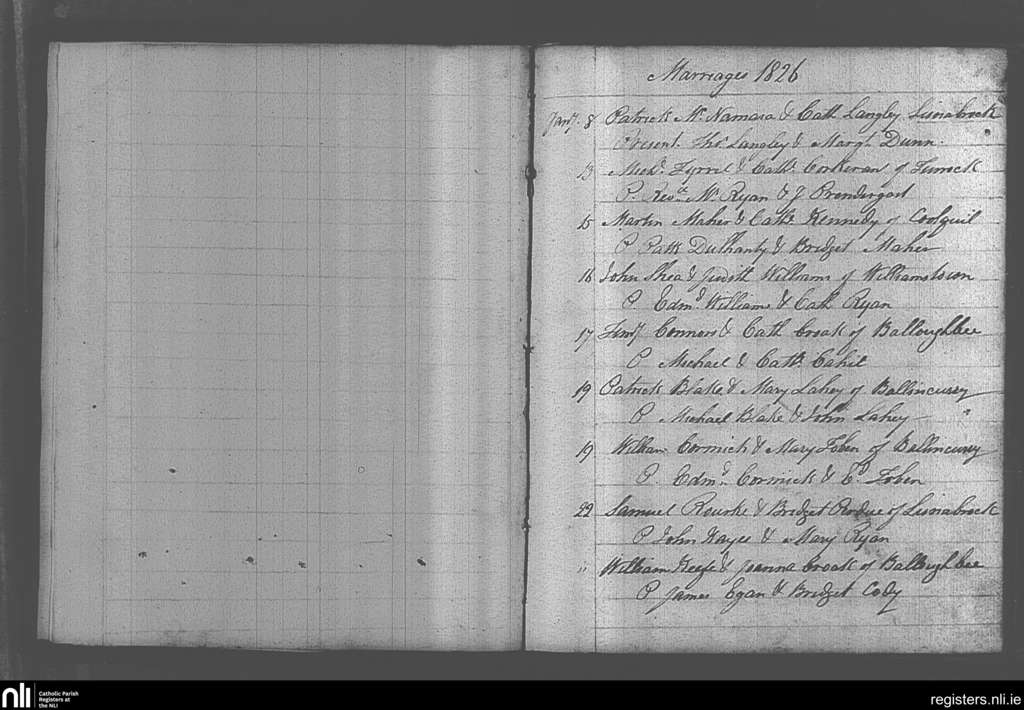 Marriages 1826
Jany. 8 Patrick McNamara & Cath Langley Lisnabrock
Present. Thos Langley & Margt. Dunn.
13 Michl. Tyrrel & Cathe. Corkeran of Turrock
P. Revd. Mr Ryan & J Prendergast
15 Martin Maher & Cathe Kennedy of Coolquil
P Patk Dulhanty & Bridget Maher
16 John Shea & Judith Williams of Williamstown
P. Edmd Williams & Cath Ryan
17 Timy Connors & Cath Croak of Balloughbee
P Michael & Cathe. Cahil
19 Patrick Blake & Mary Lahey of Ballincurry
P Michael Blake & John Lahey
19 William Cormick & Mary Toben of Ballincurry
P. Edmd. Cormick & Toben
22 Samuel Rourke & Bridget of Lisnabrock
P John Hayes & Mary Ryan
" William Keefe & Joanna Croak of Balloughbee
P James Egan & Bridget Cody
nli Catholic Parish
Registers at
the NLI
registers.nli.ie